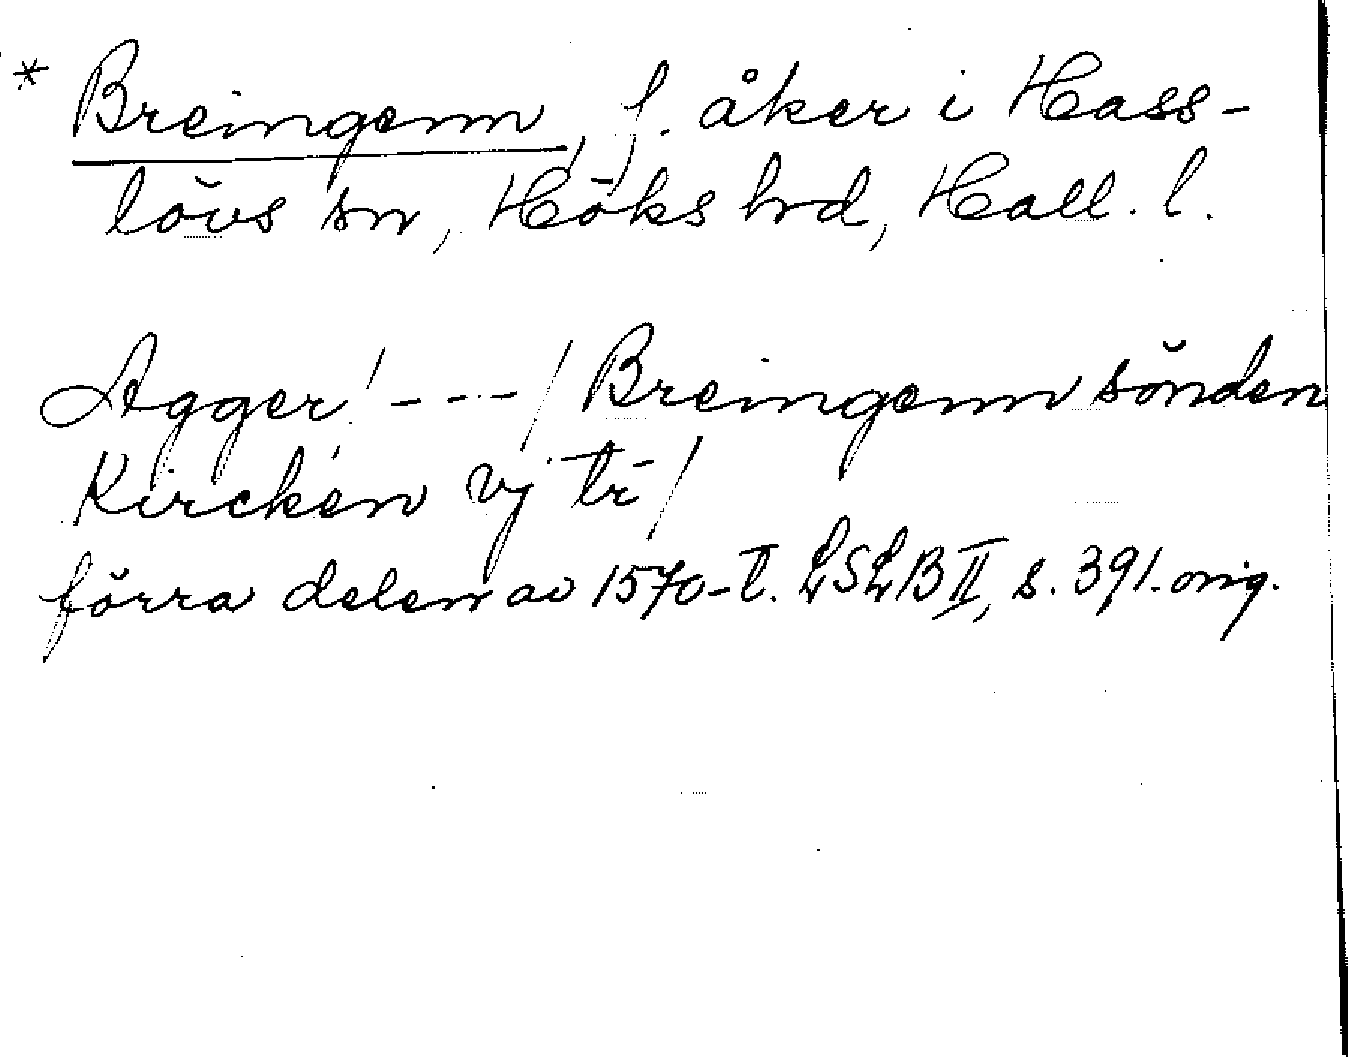 * Breingenn, f. åker i Hass-
lövs sn, Höks hrd, Hall. l.
Agger / --- / Breingenn sönden
Kircken vj tr̄ /
förra delen av 1570-t. LSLB II, s. 391. orig.